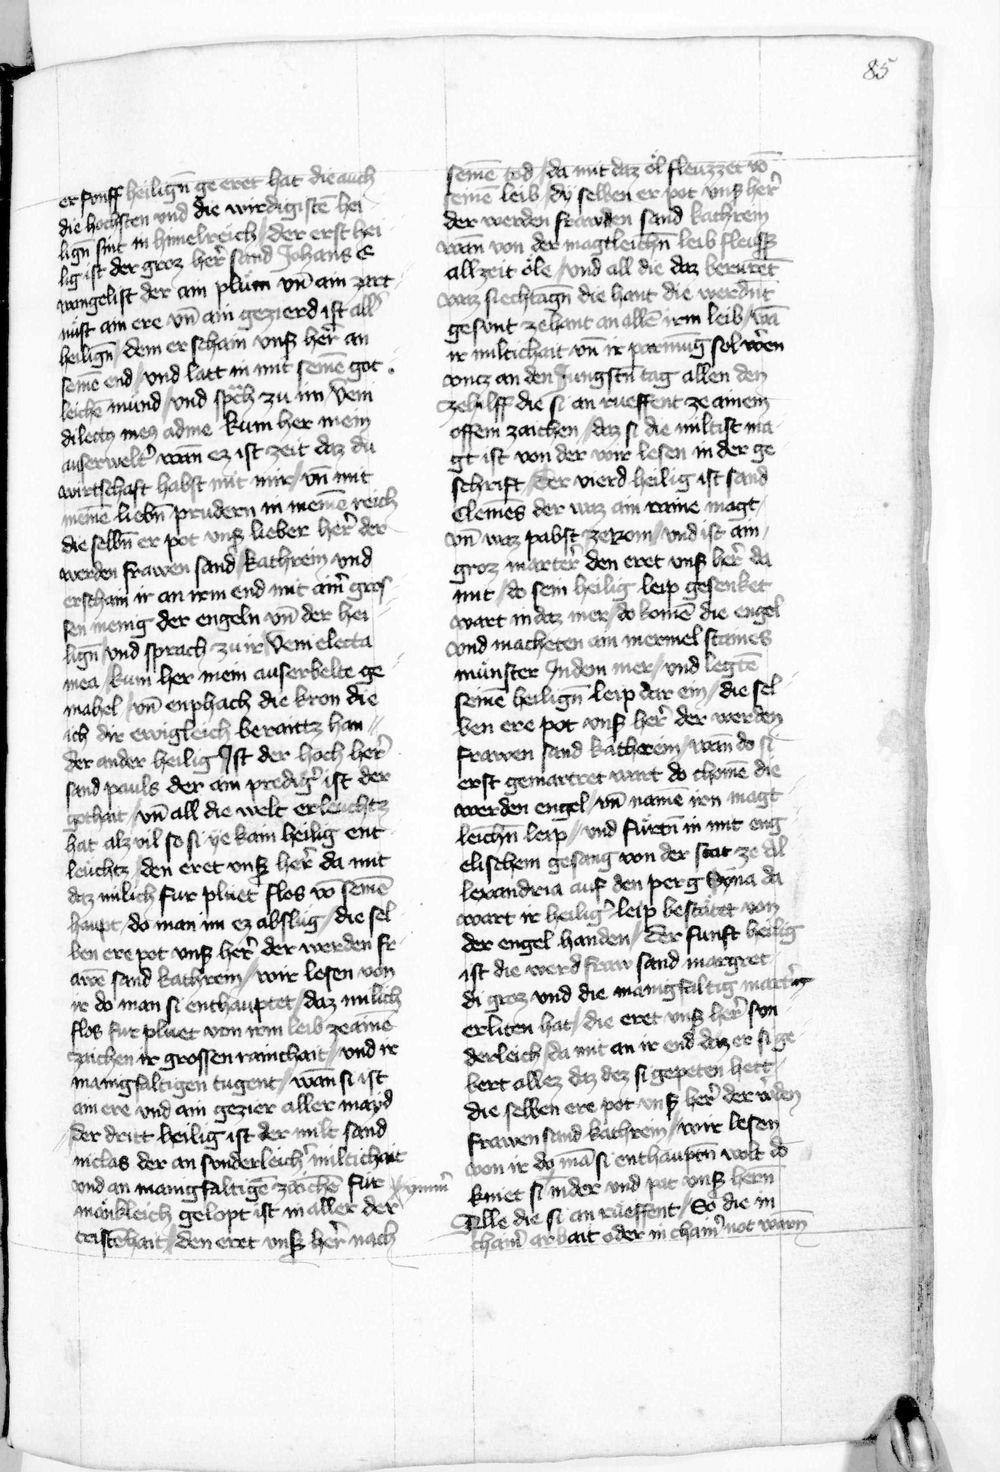 85
er funff heilign̄ ge eret hat die auch
die hochsten und die wirdigistē hei
lign̄ sint in himelreich / der erst hei
lig ist der groz her̄ sand Johans e
wangelist der ain plům vn̄ ain zart
nust ain ere vn̄ ain gezierd ist all'
heilign̄ / dem er schain unß her̄ an
seinē end / und latt in mit seinē got
leichē mund / und sp̄ch zu im Veni
dilectꝯ meꝯ ad me kum her mein
auserwelt' wān ez ist zeit daz du
wirtschaft habst mit mir / vn̄ mit
meinē liebn̄ prudern in meinē reich
die selbn̄ er pot unß lieber her̄ der
werden frawen sand kathrein und
erschain ir an irm end mit aim̄ gros
sen menig der engeln vn̄ der hei
lign̄ / und sprach zu ir Veni electa
mea / kum her mein auserbelte ge
mahel / vn̄ enphach die kron die
ich dir ewigleich beraittz han
der ander heilig Ist der hoch her̄
sand pauls der ain predig' ist der
gothait / vn̄ all die welt erleuchtz
hat alz vil so si ye kain heilig ent
leuchtz / den eret unß her̄ da mit
daz milich fur pluet flos vō seinē
haupt / do man im ez abslug / die sel
ben ere pot unß her̄ der werden fr
awē sand kathrein / wir lesen von
ir do man si enthauptet / daz milich
flos fur pluet von irm leib ze ainē
zaichen ir grossen rainchait / und ir
manigfaltigen tugent / wān si ist
ain ere und ain gezier aller mayd
der dritt heilig ist der milt sand
niclas der an sunderleich' miltichait
und an manigfaltigē zaichē für
mänkleich gelopt ist in aller der
cristēhait / den eret unß her̄ nach
seinē tod / da mit daz öl fleuzzet vō
seinē leib / dy selben er pot unß her̄
der werden frawden sand kathrein
wān von der magtleichn̄ leib fleuß
allzeit öle / und all die daz berurēt
waz siechtagn̄ die hant die werdn̄t
gesunt zehant an allē irm leib / wā
ir miltichait vn̄ ir parmūg sol wern
uncz an den Jungstn̄ tag allen den
ze hilff die si an rueffent ze ainem
offem zaichen / daz si die miltist ma
gt ist von der wir lesen in der ge
schrift / Der vierd heilig ist sand
Clemēs der waz ain raine magt
vn̄ waz pabst ze Rom / und ist ain
groz marter' den eret unß her̄ da
mit / do sein heilig leip gesenket
wart in daz mer / do komē die engel
und macheten ain mermel staines
münster In dem mer / und legtē
seinē heilign̄ leip dar ein / die sel
ben ere pot unß her̄ der werden
frawen sand katherein / wān do si
erst gemartret wart do chomē die
werden engel / vn̄ namē irn magt
leichn̄ leip / und fürtn̄ in mit eng
elischem gesang von der stat ze al
lexandria auf den perg Syna da
wart ir heilig' leip bestätet von
der engel handen / Der funft heilig
ist die werd fraw sand margret
di groz und die manigfaltig mart'g
erliten hat / die eret unß her̄ sun
derleich / da mit an ir end daz er si ge
bert allez daz dez si gepeten hett
die selben ere pot unß her̄ der w'den
frawen sand kathrein / wir lesen
von ir do mā si enthauptn̄ wolt do
kniet si nider und pat unß hern̄
Alle die si an rüeffent / So die in
chain' arbait oder in chain' not warn̄